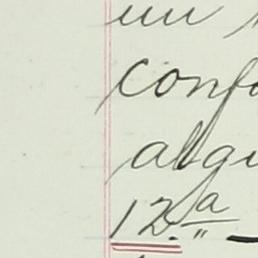 un
conf
algu
12.ª